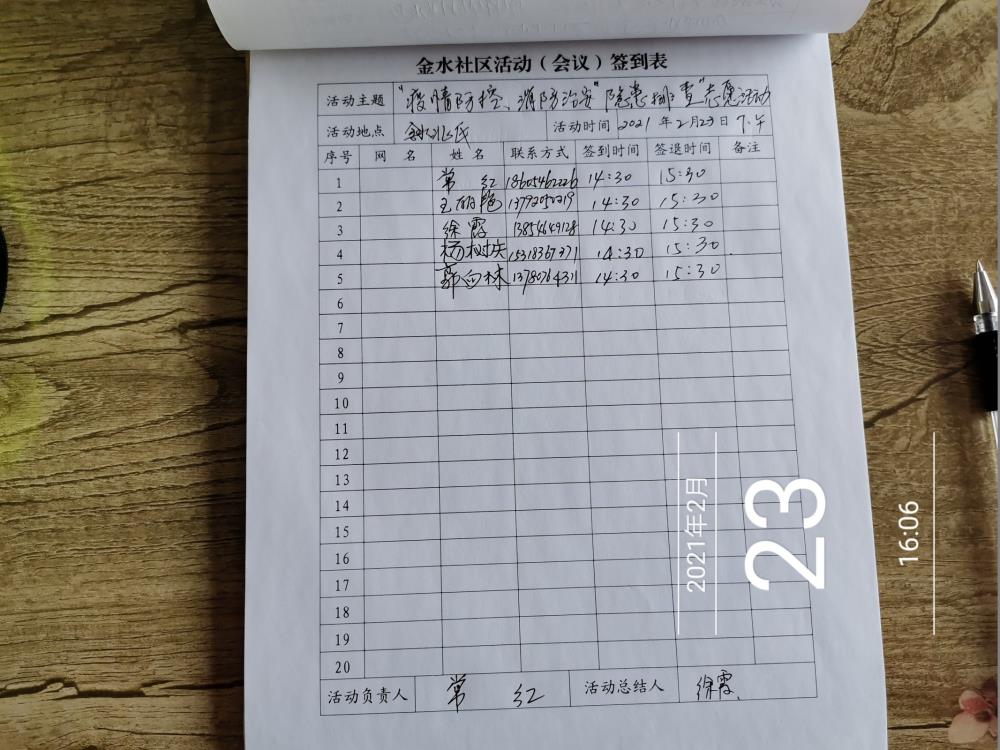 金水社区活动（会议）签到表
活动主题 "疫情防控、消防治安"隐患排查"志愿活动
活动地点 活动时间 2021年2月23日下午
序号 网 名 姓 名 联系方式 签到时间 签退时间 备注
1 常 红 18605462226 14:30 15:30
2 王丽艳 1379205219 14:30 15:30
3 徐霞 13854649128 14:30 15:30
4 杨树庆 15318367371 14:30 15:30
5 郭向林 13780764311 14:30 15:30
6
7
8
9
10
11
12
13
14
15
16
17
18
19
20
活动负责人 常 红 活动总结人 徐霞
2021年2月
23
16:06